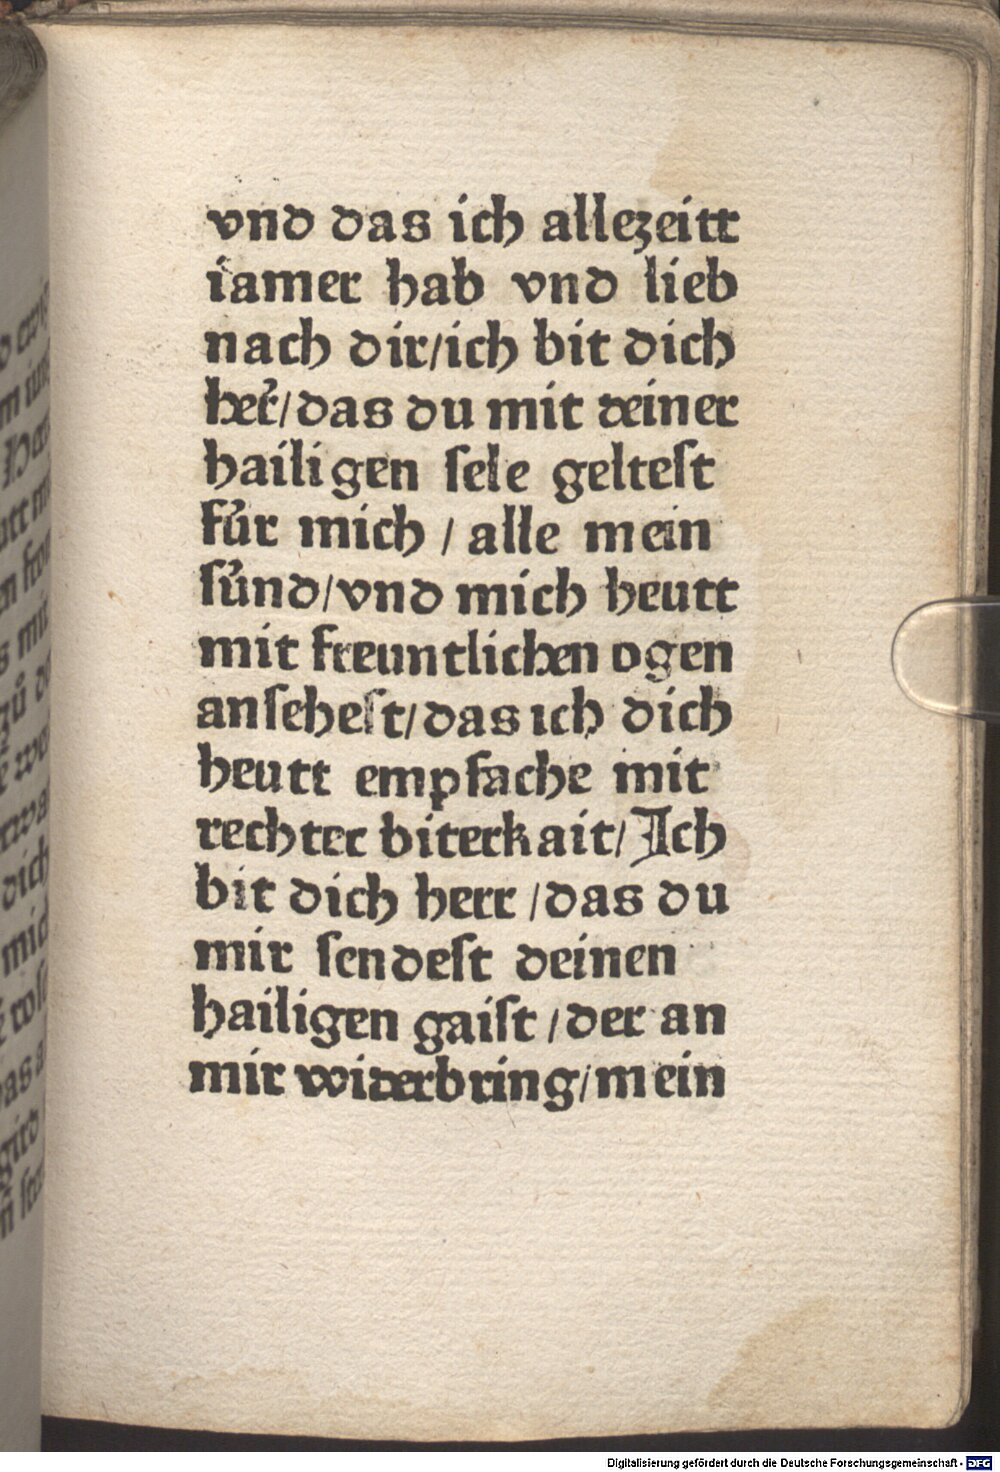 vnd das ich allezeitt
iamer hab vnd lieb
nach dir/ich bit dich
her̃/das du mit deiner
hailigen ſele gelteſt
fu̇r mich / alle mein
ſu̇nd/vnd mich heutt
mit freuntlichen ogen
anſeheſt/das ich dich
heutt empfache mit
rechter biterkait/Ich
bit dich herr /das du
mir ſendeſt deinen
hailigen gaiſt /der an
mir widerbring/mein
Digitalisierung gefördert durch die Deutsche Forschungsgemeinschaft - DFG